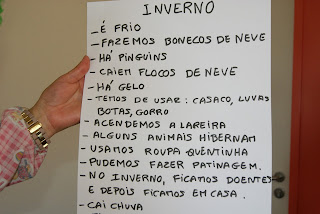 INVERNO
- É FRIO
- FAZEMOS BONECOS DE NEVE
- HÁ PINGUINS
- CAIEM FLOCOS DE NEVE
- HÁ GELO
- TEMOS DE USAR: CASACO, LUVAS
BOTAS, GORRO
- ACENDEMOS A LAREIRA
- ALGUNS ANIMAIS HIBERNAM
- USAMOS ROUPA QUENTINHA
- PUDEMOS FAZER PATINAGEM.
- NO INVERNO, FICAMOS DOENTES
E DEPOIS FICAMOS EM CASA.
- CAI CHUVA